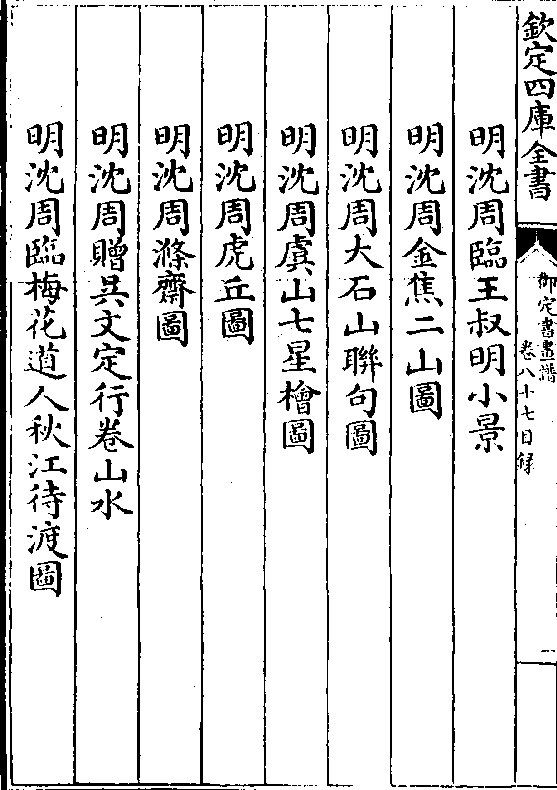 欽定四庫全書
御定書畫譜
卷八十七目録
一
明沈周臨王叔明小景
明沈周金焦二山圖
明沈周大石山聯句圖
明沈周虞山七星檜圖
明沈周虎丘圖
明沈周滌齋圖
明沈周贈吳文定行卷山水
明沈周臨梅花道人秋江待渡圖